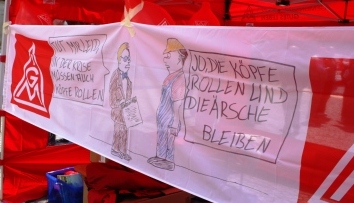 IN DER KRISE
MÜSSEN AUCH
KÖPFE ROLLEN
JO, DIE KÖPFE
ROLLEN UND
DIE ÄRSCHE
BLEIBEN